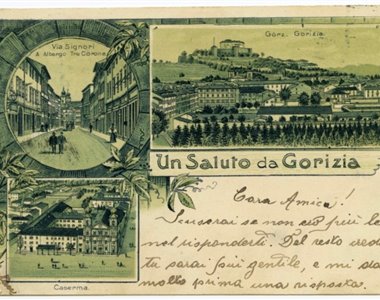 Via Signori
A Albergo Tre Corone
Görz. Gorizia.
Un Saluto da Gorizia
Caserma.
Cara Amica!
Scuserai se non
nel risponderti. Del resto
tu sarai più gentile, e mi
molto prima una risposta.